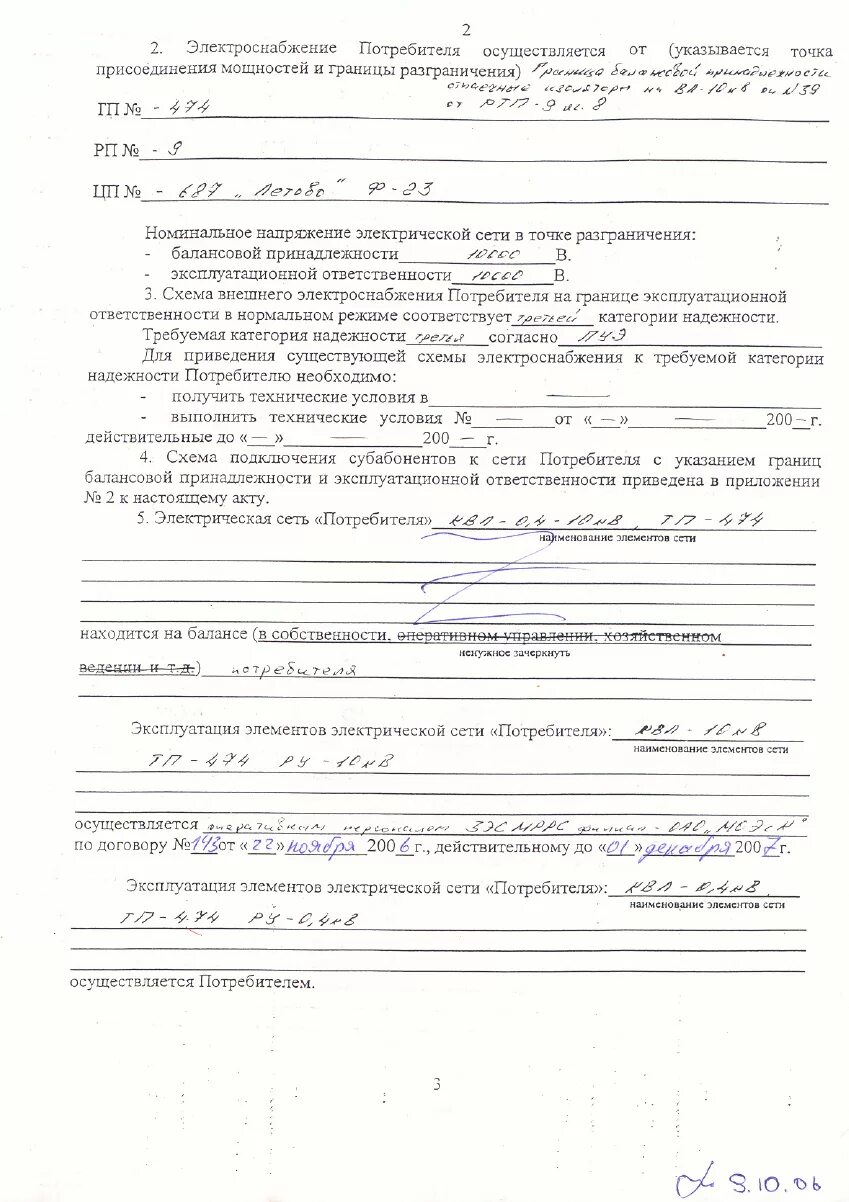 2
2. Электроснабжение Потребителя осуществляется от (указывается точка
присоединения мощностей и границы разграничения) Граница балансовой принадлежности
на ВЛ-10кВ
ГП № - 474 от РТП-9
РП № - 9
ЦП № - 687 „Летово“ Ф-23
Номинальное напряжение электрической сети в точке разграничения:
- балансовой принадлежности 10000 В.
- эксплуатационной ответственности 10000 В.
3. Схема внешнего электроснабжения Потребителя на границе эксплуатационной
ответственности в нормальном режиме соответствует третьей категории надежности.
Требуемая категория надежности третья согласно ПУЭ
Для приведения существующей схемы электроснабжения к требуемой категории
надежности Потребителю необходимо:
- получить технические условия в —
- выполнить технические условия № — от « — » — 200 – г.
действительные до « — » — 200 — г.
4. Схема подключения субабонентов к сети Потребителя с указанием границ
балансовой принадлежности и эксплуатационной ответственности приведена в приложении
№ 2 к настоящему акту.
5. Электрическая сеть «Потребителя» КВЛ-0,4-10кВ, ТП-474
наименование элементов сети
находится на балансе (в собственности, оперативном управлении, хозяйственном
ненужное зачеркнуть
ведении и т.д.) потребителя
Эксплуатация элементов электрической сети «Потребителя»: КВЛ-10кВ
наименование элементов сети
ТП-474 РУ-10кВ
осуществляется оперативным персоналом ЗЭС МРРС филиал-ОАО„
по договору № 143 от «22» ноября 2006 г., действительному до «01» декабря 2007 г.
Эксплуатация элементов электрической сети «Потребителя»: КВЛ-0,4кВ,
наименование элементов сети
ТП-474 РУ-0,4кВ
осуществляется Потребителем.
3
9.10.06